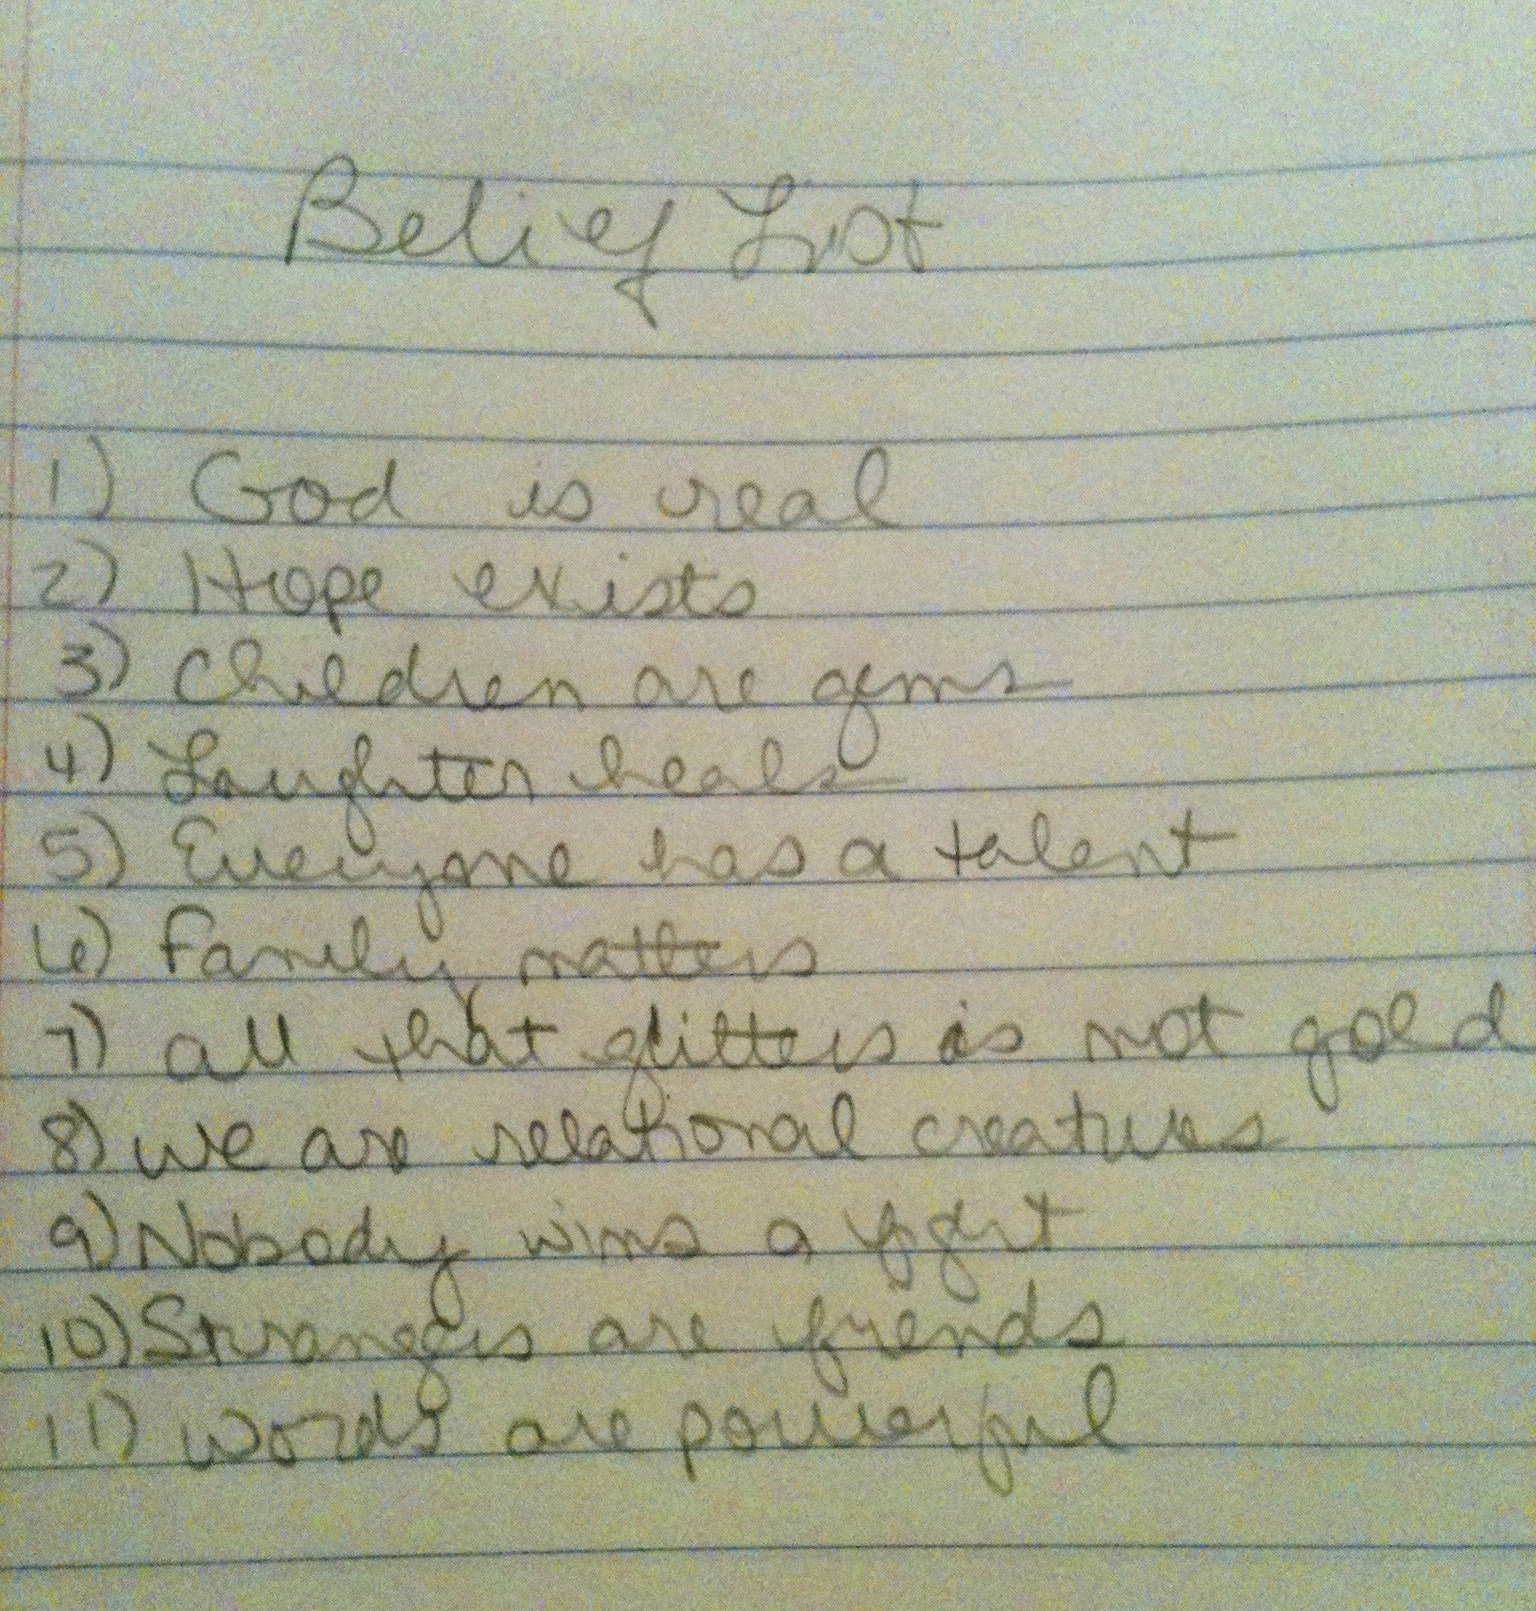 Belief List
1) God is real
2) Hope exists
3) Children are gems
4) Laughter heals
5) Everyone has a talent
6) Family matters
7) all that glitters is not gold
8) we are relational creatures
9) Nobody wins a fight
10) Strangers are friends
11) words are powerful